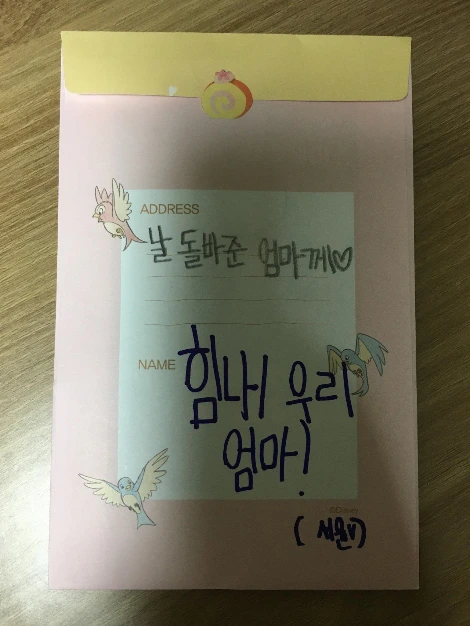 ADDRESS
날 돌바준 엄마께♡
NAME 힘내 우리
엄마!
©Disney
(서윤♥)